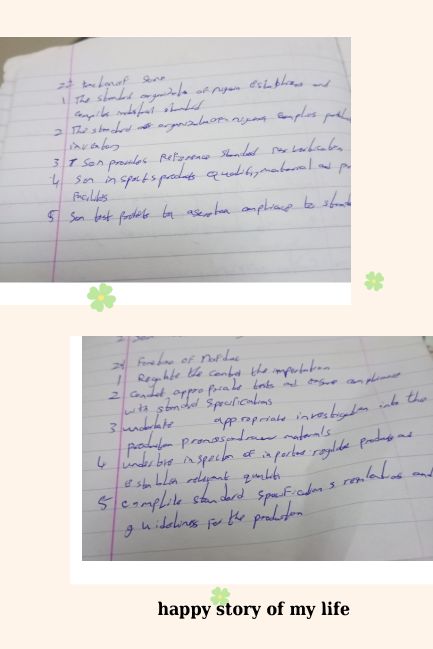 function of Son
1 The standard organization of nigeria Establishes and
compile industrial standard
2 The standard organization of nigeria compiles
inventory
3 Son provides Reference standard for
4 Son inspects products quality, material and
facilities
5 Son test products by compliance to
2) Function of Nafdac
1 Regulate the control the importation
2 Conduct appropriate tests and ensure compliance
with standard specifications
3 undertake appropriate investigation into the
production and raw materials
4 undertake inspection of imported products and
establish relevant quality
5 complile standard specifications and
guideliness for the production
happy story of my life